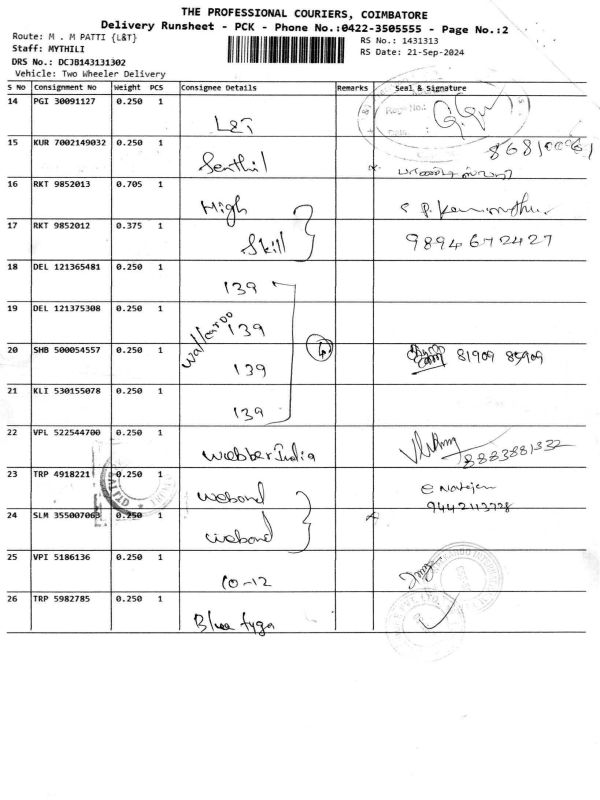 THE PROFESSIONAL COURIERS, COIMBATORE
Delivery Runsheet - PCK - Phone No.:0422-3505555 - Page No.:2
Route: M . M PATTI {L&T}
RS No.: 1431313
Staff: MYTHILI
RS Date: 21-Sep-2024
DRS No.: DCJB143131302
Vehicle: Two Wheeler Delivery
S No Consignment No Weight PCS Consignee Details Remarks Seal & Signature
14 PGI 30091127 0.250 1
L&T
15 KUR 7002149032 0.250 1
Senthil
16 RKT 9852013 0.705 1
High
17 RKT 9852012 0.375 1
Skill 9894672427
18 DEL 121365481 0.250 1
139
19 DEL 121375308 0.250 1
wallaroo 139
20 SHB 500054557 0.250 1
139 4 81909 85909
21 KLI 530155078 0.250 1
139
22 VPL 522544700 0.250 1
webber India 8883881332
23 TRP 4918221 0.250 1
webond 9442113728
24 SLM 355007063 0.250 1
webond
25 VPI 5186136 0.250 1
10-12
26 TRP 5982785 0.250 1
Blue tyga